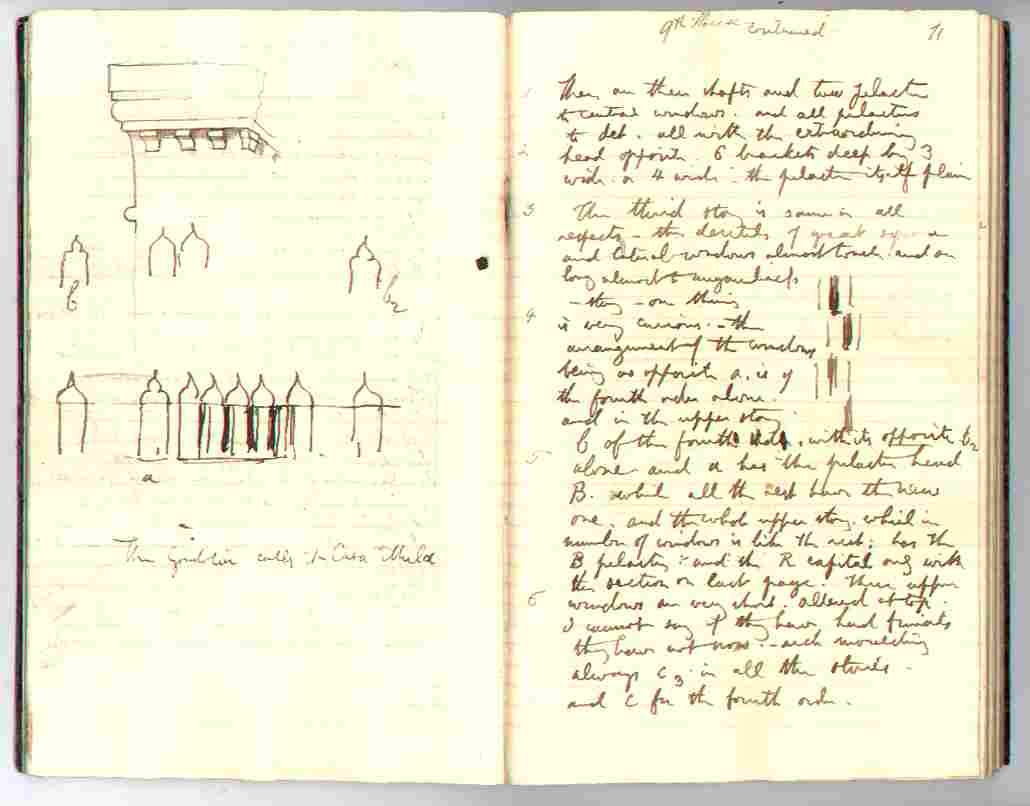 b
b2
a
The Gondolier calls it Casa
9th House continued
71
1 There are then shafts and two pilasters
to central windows. and all pilasters
to do. all with the extraordinary
2 head opposite. 6 brackets deep by 3
wide or 4 wide - the pilaster itself plain
3 The third story is same in all
respects - the details of great
and lateral windows almost touch and are
long almost to
- story - one thing
4 is very curious. - the
arrangement of the windows
being as opposite a. is of
the fourth order alone.
and in the upper story
b of the fourth, with its opposite b2
5 alone and a has the pilaster head
B. while all the rest have the new
one. and the whole upper story. which in
number of windows is like the rest; has the
B pilasters and the R capital only with
the section on last page. These upper
6 windows are very short. altered at top.
I cannot say if they have had finials
they have not now. - arch moulding
always C3 in all the stories -
and C for the fourth order.